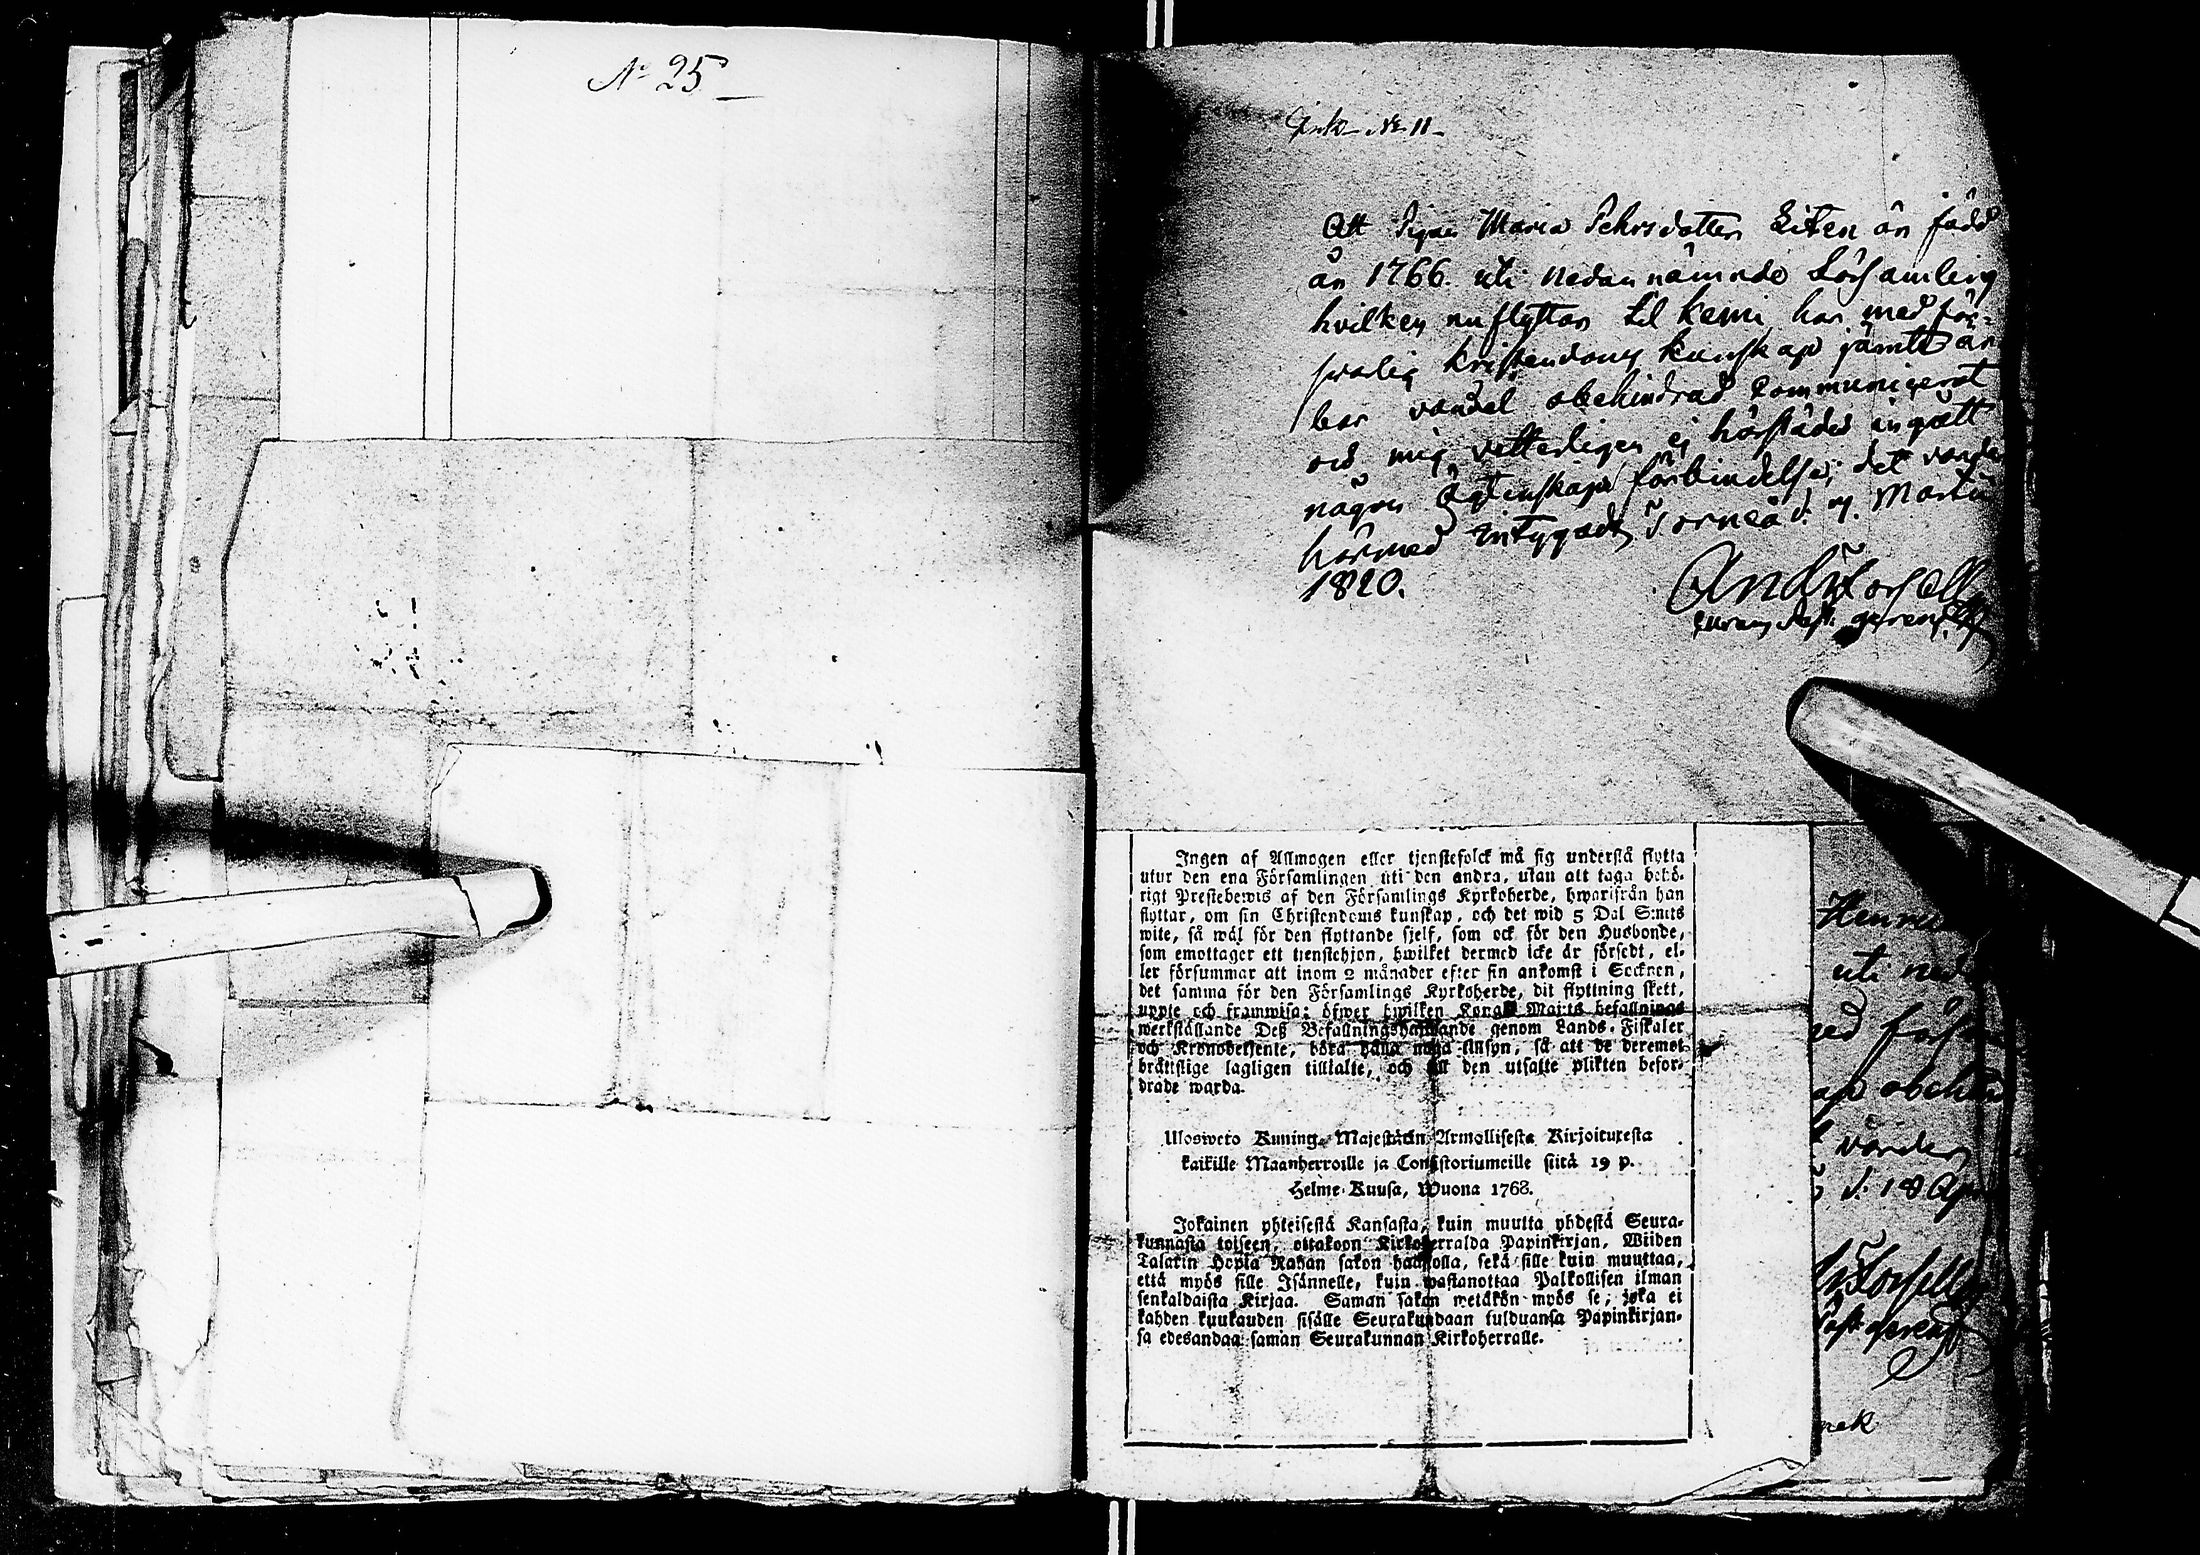 No 25
Ink. No 11
Att Pigan Maria Pehrsdotter Liten är född
år 1766. uti nedannämnde Församling
hvilken nu flyttar til Kemi, har med för-
svarlig kristendoms kunskap jämte är
bar vandel obehindrad communicerat
och mig vetterligen ej härstädes ingått
någon Ägtenskaps förbindelse; det varder
härmed intygadt, Torneå d. 7. Martii
1820.
And:
Ingen af Allmogen eller tjenstefolck må sig understå flytta
utur den ena Församlingen uti den andra, utan att taga behö-
rigt Prestebewis af den Församlings Kyrkoherde, hwarifrån han
flyttar, om sin Christendoms kunskap, och det wid 5 Dal S:mts
wite, så wäl för den flyttande sjelf, som ock för den Husbonde,
som emottager ett tjenstehjon, hwilket dermed icke är försedt, el-
ler försummar att inom 2 månader efter sin ankomst i Socknen,
det samma för den Församlings Kyrkoherde, dit flyttning skett,
uppte och framwisa; öfwer hwilken Kongl Maj:ts befallnings
werkställande Deß Befallningshafwande genom Lands-Fiskaler
och Kronobetjente, böra hålla noga tillsyn, så att de deremot
bråttslige lagligen tilltalte, och till den utsatte plikten befor-
drade warda.
Ulosweto Kuning. Majestätin Armollisesta Kirjoituxesta
kaikille Maanherroille ja Consistoriumeille siitä 19 p.
Helme-Kuusa, Wuona 1768.
Jokainen yhteisestä Kansasta, kuin muutta yhdestä Seura-
kunnasta toiseen, ottakoon Kirkoherralda Papinkirjan, Wiiden
Talarin Hopia Rahan sakon haastolla, sekä sille kuin muuttaa,
että myös sille Isännelle, kuin wastanottaa Palkollisen ilman
senkaldaista Kirjaa. Saman sakon wetäkön myös se, joka ei
kahden kuukauden sisälle Seurakundaan tulduansa Papinkirjan-
sa edesandaa saman Seurakunnan Kirkoherralle.
uti ned
d. 18 Apr